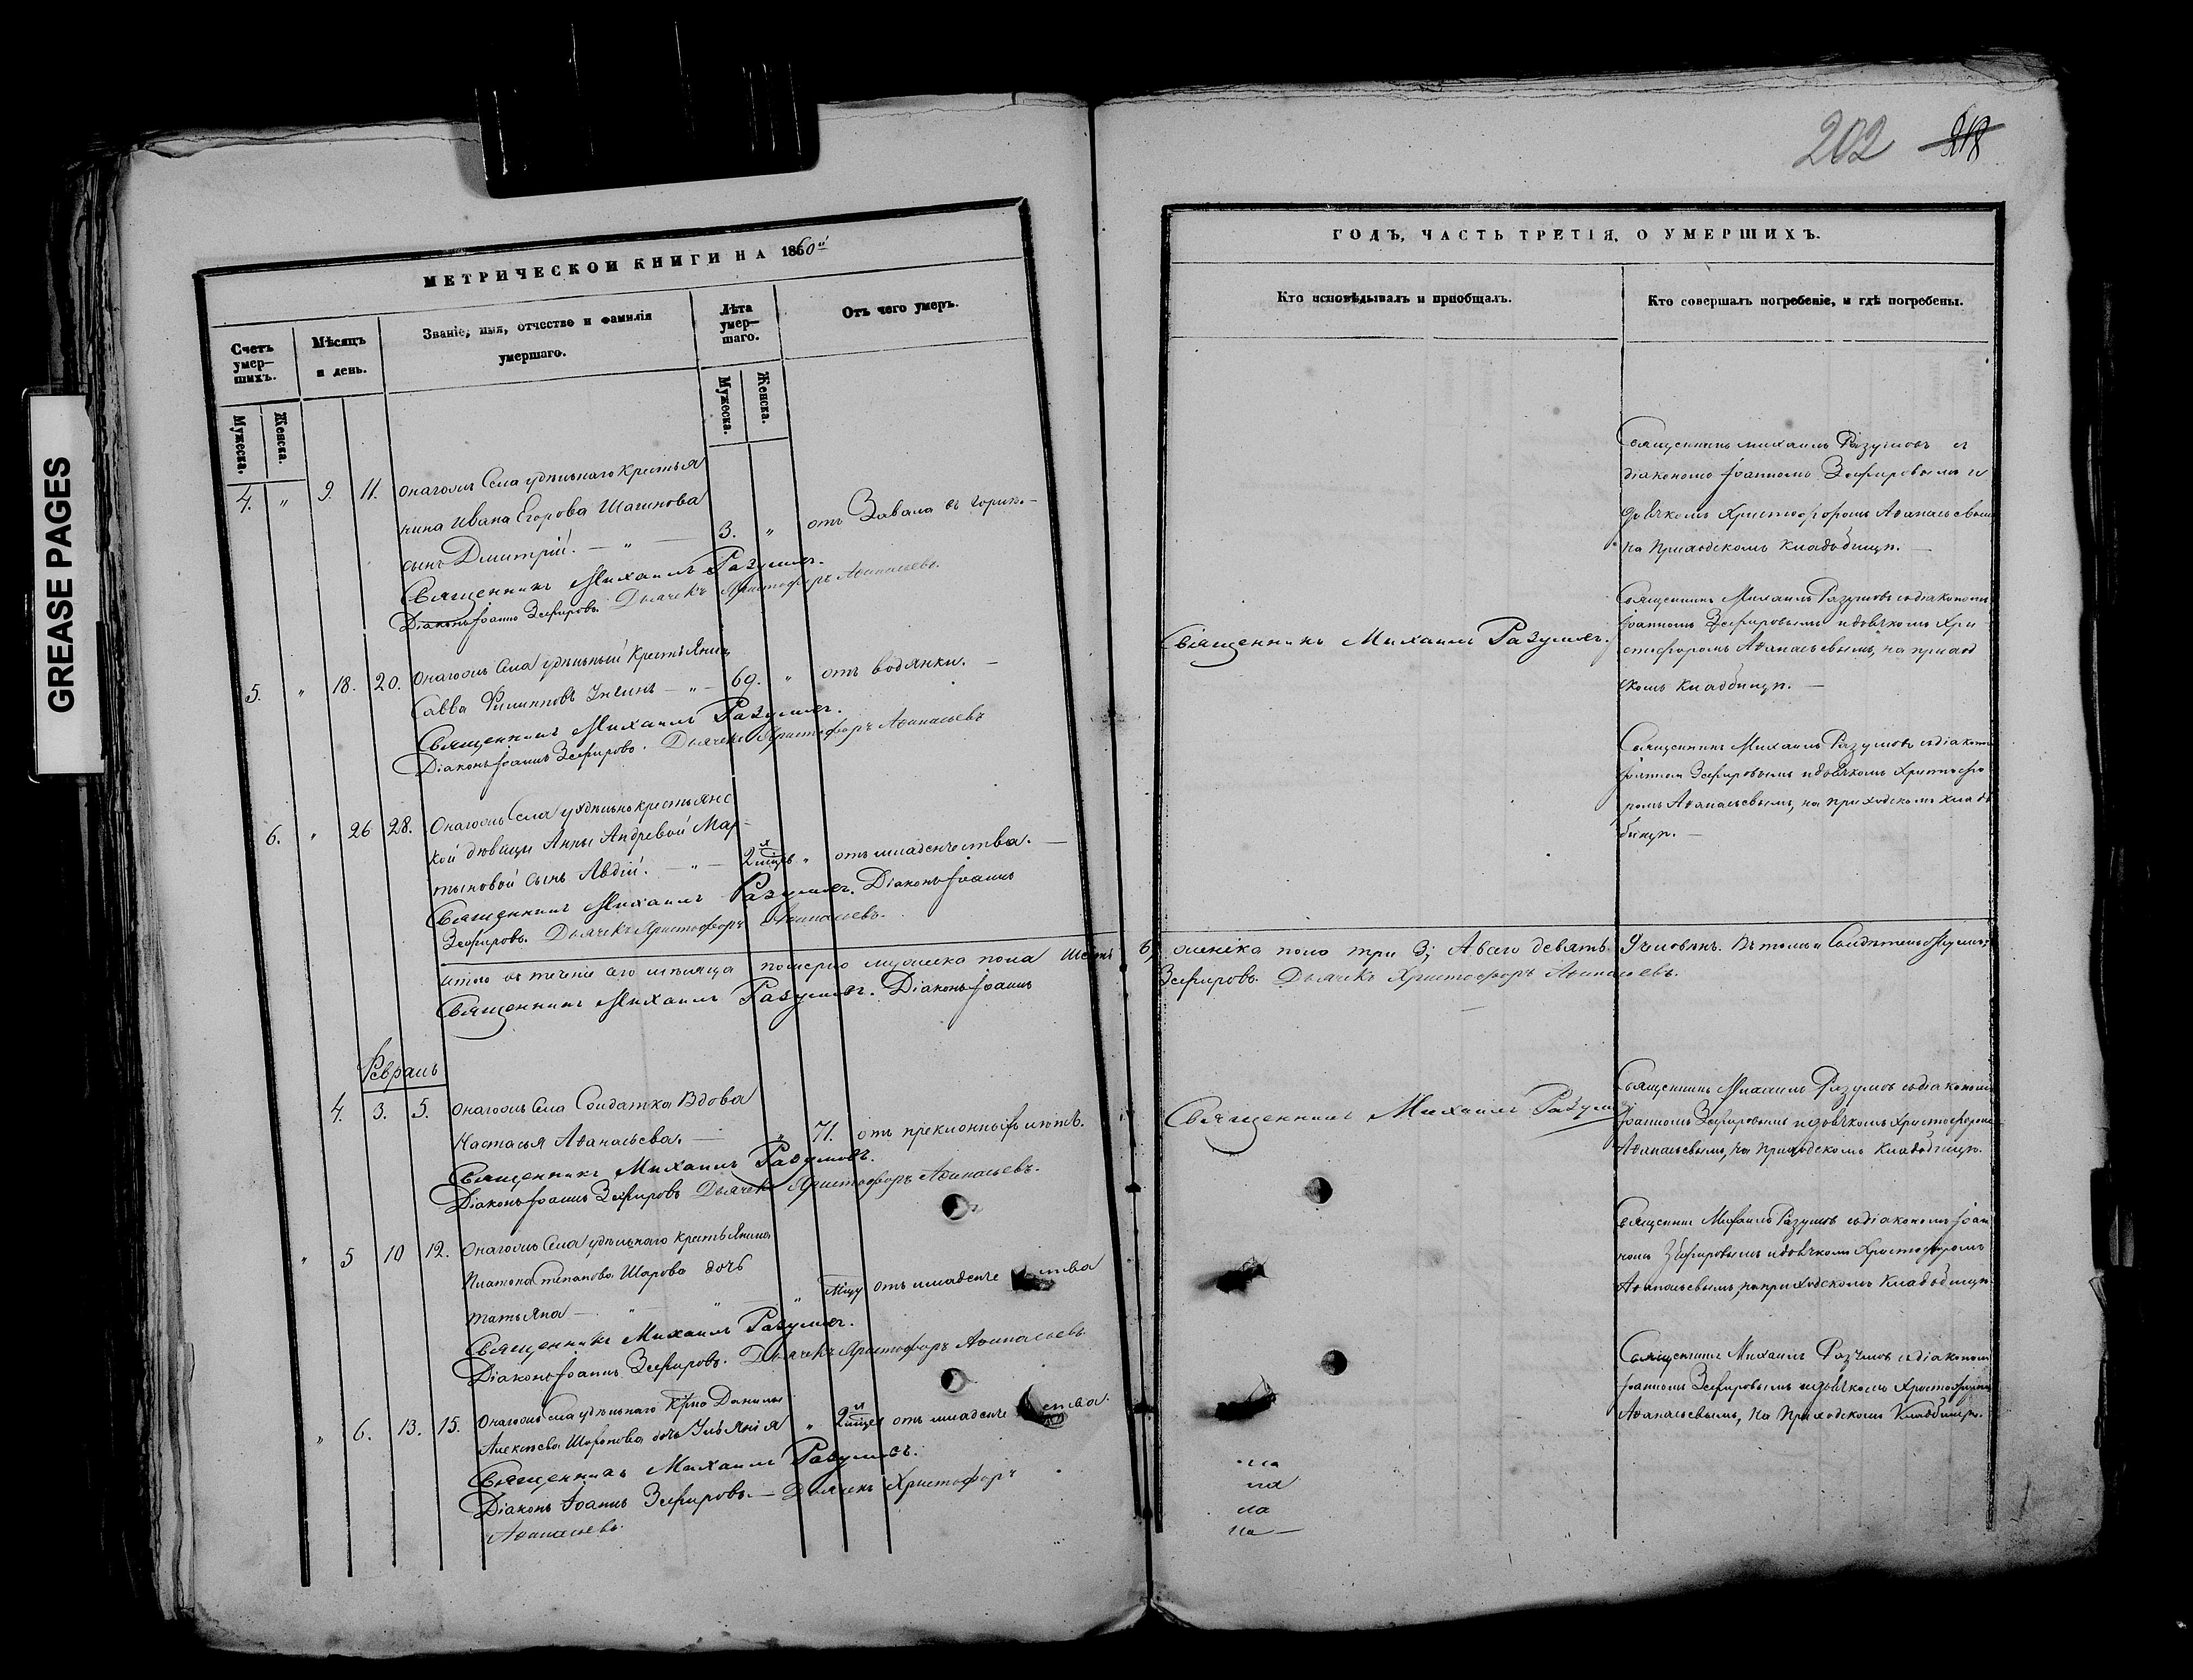 GREASE PAGES
202 218
МЕТРИЧЕСКОЙ КНИГИ НА 1860й
Счетъ умер-
шихъ.
Мѣсяцъ
и день.
Званіе, имя, отчество и фамилія
умершаго.
Лѣта
умер-
шаго.
Отъ чего умеръ.
Мужеска.
Женска.
Мужеска.
Женска.
4. " 9. 11. Онагожъ Села удѣльнаго крестья
нина Ивана Егорова
сынъ Дмитрій. — " — 3. " отъ Завала въ горлѣ. —
Священникъ Михаилъ Разумовъ.
Діаконъ Іоаннъ Зефировъ. Дьячекъ Христофоръ Аѳанасьевъ.
5. " 18. 20. Онагожъ Села удѣльный Крестьянинъ
Савва Филипповъ — " — 69. " отъ водянки. —
Священникъ Михаилъ Разумовъ.
Діаконъ Іоаннъ Зефировъ. Дьячекъ Христофоръ Аѳанасьевъ
6. " 26 28. Онагожъ Села удѣльно крестьянс
кой дѣвицы Анны Андреевой Мар-
тыновой сынъ Авдій. — " — 2 " отъ младенчества. —
Священникъ Михаилъ Разумовъ. Діаконъ Іоаннъ
Зефировъ. Дьячекъ Христофоръ Аѳанасьевъ.
Итого въ теченіе сего мѣсяца померло мужеска пола шесть
Священникъ Михаилъ Разумовъ. Діаконъ Іоаннъ
Февраль
4. 3. 5. Онагожъ Села Солдатка Вдова
Настасья Аѳанасьева. — " 71. отъ преклонныхъ лѣтъ.
Священникъ Михаилъ Разумовъ.
Діаконъ Іоаннъ Зефировъ Дьячекъ Христофоръ Аѳанасьевъ.
" 5 10 12. Онагожъ Села удѣльнаго крестьянина
Платона Степанова Шарова дочь
Татьяна — " — " — " отъ младенче ства
Священникъ Михаилъ Разумовъ.
Діаконъ Іоаннъ Зефировъ. Дьячекъ Христофоръ Аѳанасьевъ
" 6. 13. 15. Онагожъ села удѣльнаго Данилы
Алексѣева дочь Ульянія " 2 отъ младенче ства.
Священникъ Михаилъ Разумовъ.
Діаконъ Іоаннъ Зефировъ. — Дьячекъ Христофоръ
Аѳанасьевъ.
ГОДЪ, ЧАСТЬ ТРЕТІЯ, О УМЕРШИХЪ.
Кто исповѣдывалъ и пріобщалъ.
Кто совершалъ погребеніе, и гдѣ погребены.
Священникъ Михаилъ Разумовъ съ
діакономъ Іоанномъ Зефировымъ и
дьячкомъ Христофоромъ Аѳанасьевымъ
на Приходскомъ Кладбищѣ. —
Священникъ Михаилъ Разумовъ.
Священникъ Михаилъ Разумовъ съ діакономъ
Іоанномъ Зефировымъ и дьячкомъ Хри
стофоромъ Аѳанасьевымъ, на приход
скомъ кладбищѣ. —
Священникъ Михаилъ Разумовъ съ діакономъ
Іоанномъ Зефировымъ и дьячкомъ Христофо
ромъ Аѳанасьевымъ, на приходскомъ клад
бищѣ. —
6, женска пола три 3; А всего девять 9 человѣкъ. Въ томъ и
Зефировъ. Дьячекъ Христофоръ Аѳанасьевъ.
Священникъ Михаилъ Разумовъ
Священникъ Михаилъ Разумовъ съ діакономъ
Іоанномъ Зефировымъ и дьячкомъ Христофоромъ
Аѳанасьевымъ, на Приходскомъ Кладбищѣ.
Священникъ Михаилъ Разумовъ съ діакономъ Іоан
номъ Зефировымъ и дьячкомъ Христофоромъ
Аѳанасьевымъ, на приходскомъ Кладбищѣ
Священникъ Михаилъ Разумовъ съ діакономъ
Іоанномъ Зефировымъ и дьячкомъ Христофоромъ
Аѳанасьевымъ, на Приходскомъ Кладбищѣ.